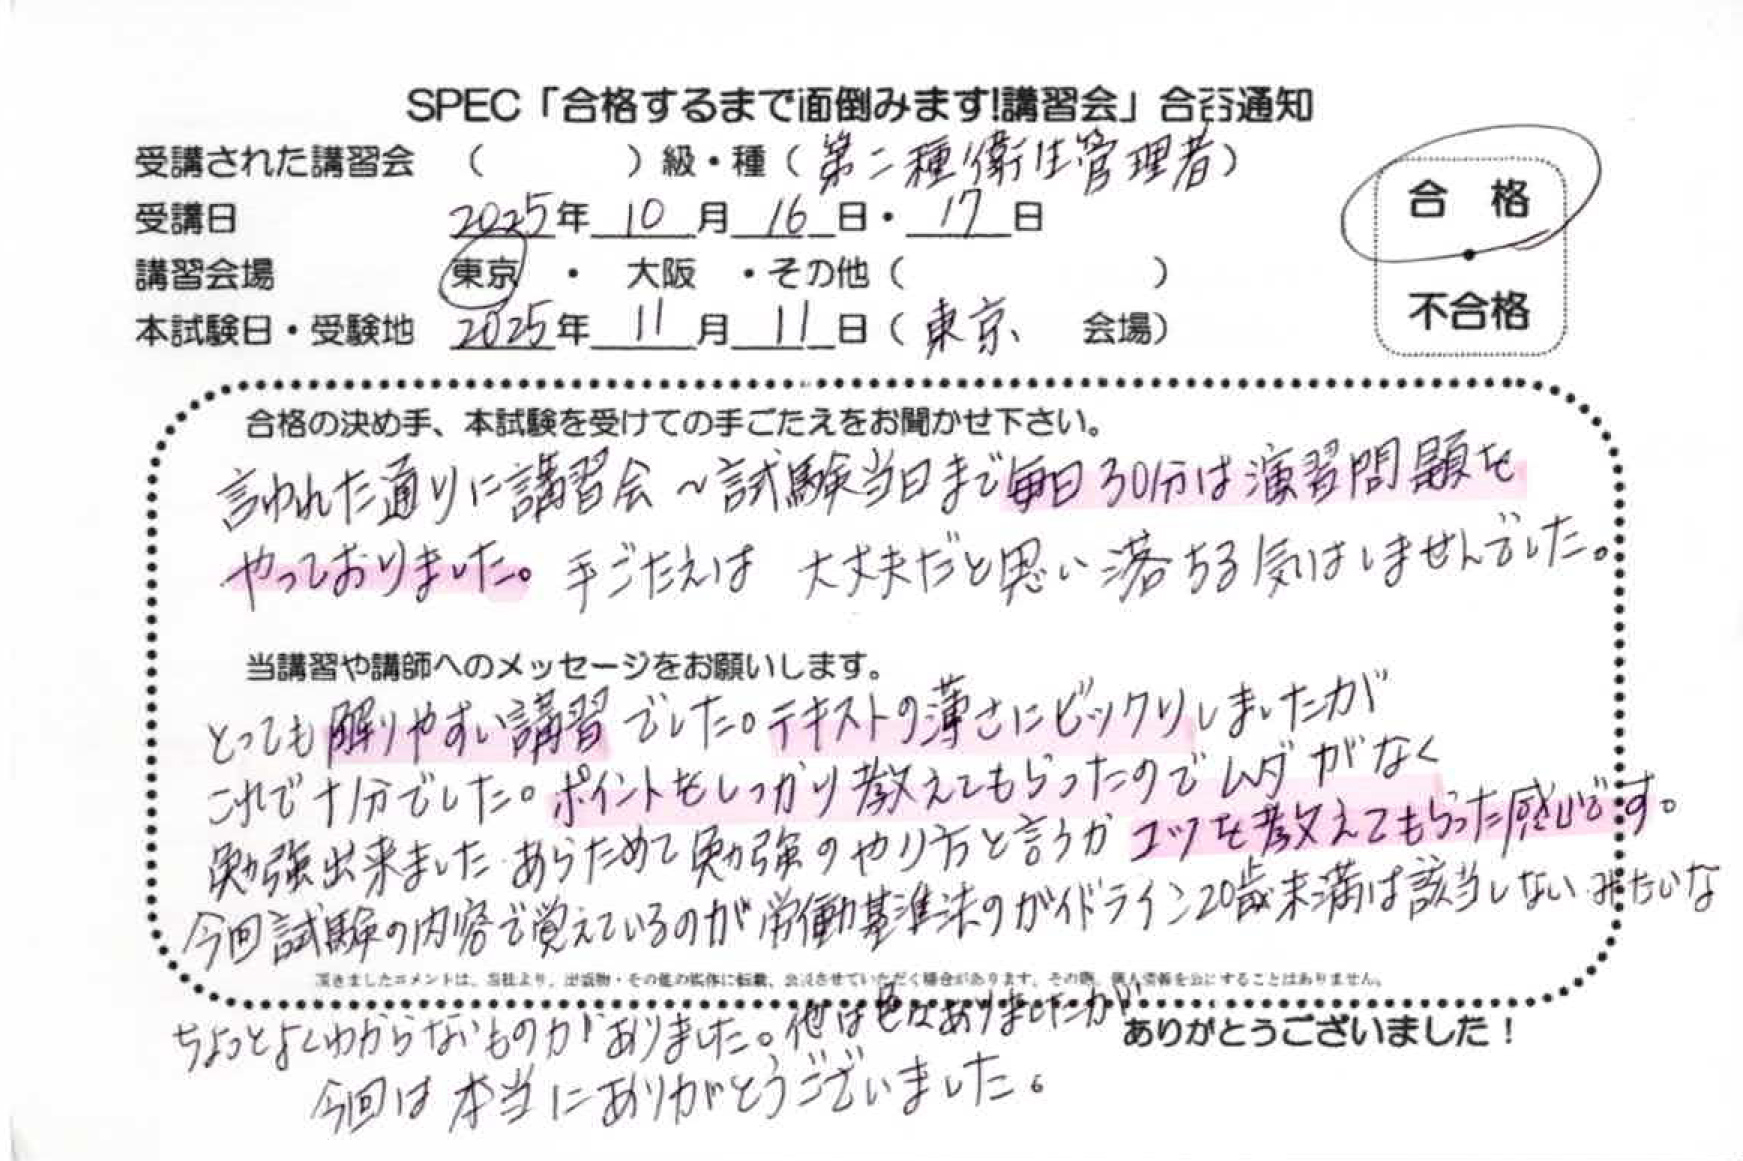 SPEC「合格するまで面倒みます!講習会」合否通知
受講された講習会 （ ）級・種（第二種衛生管理者）
受講日 2025年 10 月 16 日・ 17 日
講習会場 東京 ・ 大阪 ・その他（ ）
本試験日・受験地 2025年 11 月 11 日（東京、 会場）
合 格
・
不合格
合格の決め手、本試験を受けての手ごたえをお聞かせ下さい。
言われた通りに講習会～試験当日まで毎日30分は演習問題を
やっておりました。手ごたえは 大丈夫だと思い落ちる気はしませんでした。
当講習や講師へのメッセージをお願いします。
とっても解りやすい講習でした。テキストの薄さにビックリしましたが
これで十分でした。ポイントをしっかり教えてもらったのでムダがなく
勉強出来ました。あらためて勉強のやり方と言うかコツを教えてもらった感じです。
今回試験の内容で覚えているのが労働基準法のガイドライン20歳未満は該当しないみたいな
頂きましたコメントは、当社より、出版物・その他の媒体に転載、公表させていただく場合があります。その際、個人情報を公にすることはありません。
ちょっとよくわからないものがありました。他は色々ありましたが
ありがとうございました！
今回は本当にありがとうございました。